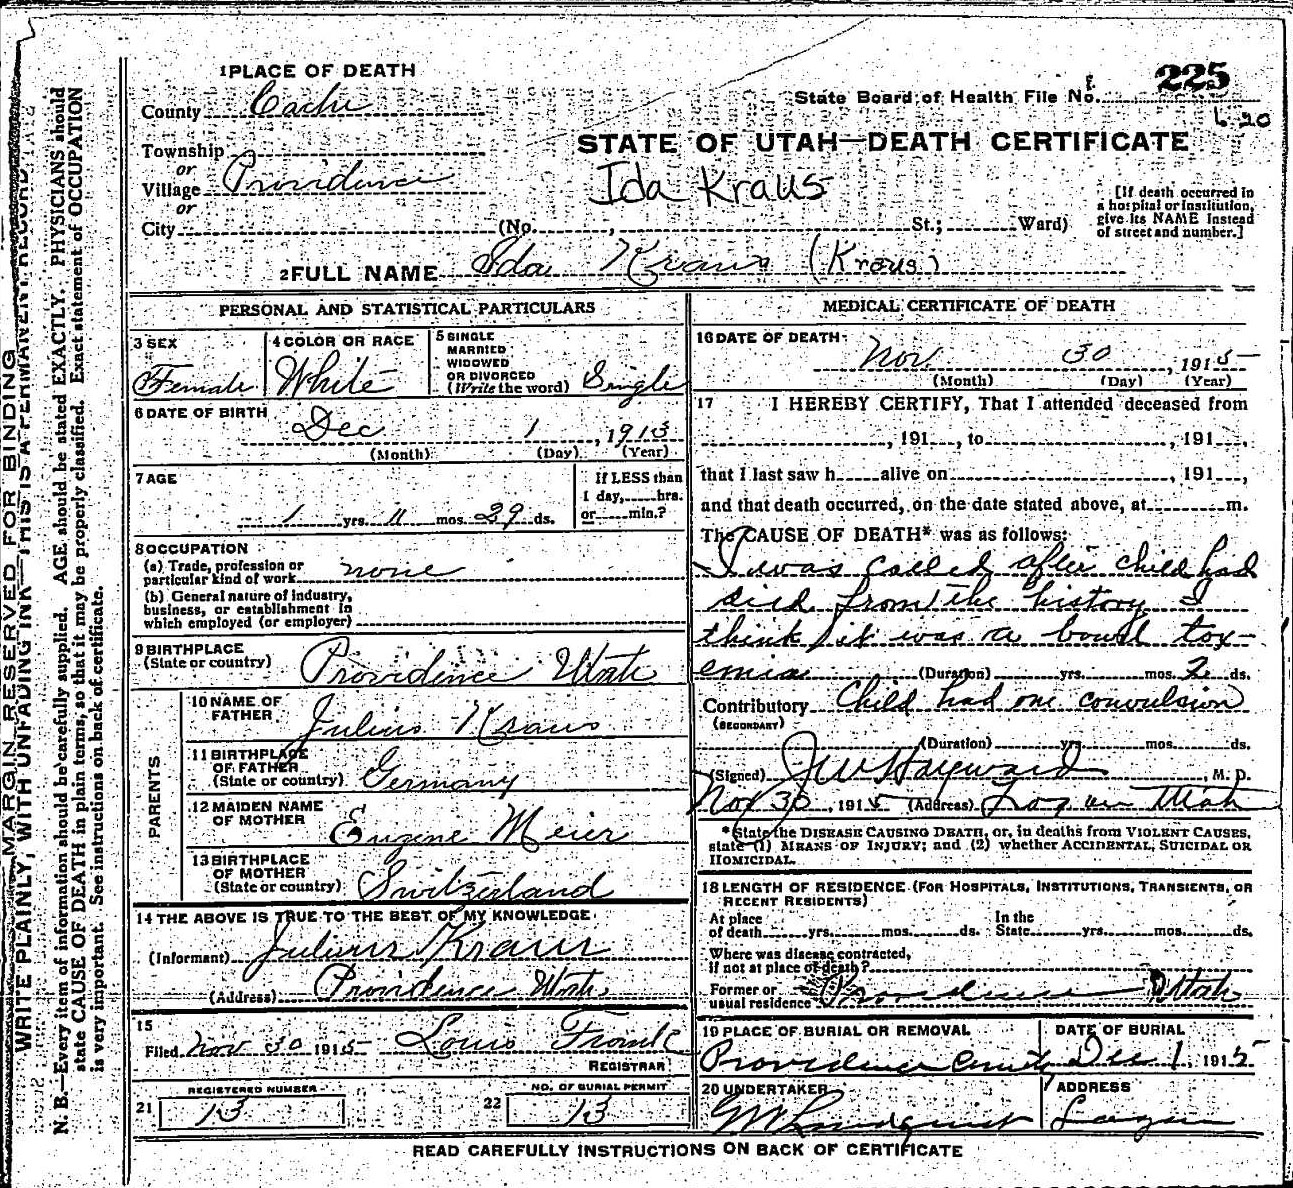 MARGIN RESERVED FOR BINDING
WRITE PLAINLY, WITH UNFADING INK—THIS IS A PERMANENT RECORD
N. B.—Every item of information should be carefully supplied. AGE should be stated EXACTLY. PHYSICIANS should
state CAUSE OF DEATH in plain terms, so that it may be properly classified. Exact statement of OCCUPATION
is very important. See instructions on back of certificate.
1 PLACE OF DEATH
County Cache
Township
or
Village Providence
or
City (No. , St.; Ward)
State Board of Health File No. 225
620
STATE OF UTAH—DEATH CERTIFICATE
Ida Kraus
[If death occurred in
a hospital or institution,
give its NAME instead
of street and number.]
2 FULL NAME Ida Kraus (Kraus)
PERSONAL AND STATISTICAL PARTICULARS
3 SEX Female
4 COLOR OR RACE White
5 SINGLE
MARRIED
WIDOWED
OR DIVORCED
(Write the word) Single
6 DATE OF BIRTH
Dec 1, 1913
(Month) (Day) (Year)
7 AGE
1 yrs. 11 mos. 29 ds.
If LESS than
1 day, hrs.
or min.?
8 OCCUPATION
(a) Trade, profession or
particular kind of work none
(b) General nature of industry,
business, or establishment in
which employed (or employer)
9 BIRTHPLACE
(State or country) Providence Utah
PARENTS
10 NAME OF
FATHER Julius Kraus
11 BIRTHPLACE
OF FATHER
(State or country) Germany
12 MAIDEN NAME
OF MOTHER Eugene Meier
13 BIRTHPLACE
OF MOTHER
(State or country) Switzerland
14 THE ABOVE IS TRUE TO THE BEST OF MY KNOWLEDGE
(Informant) Julius Kraus
(Address) Providence Utah
15
Filed Nov 30 1915 Louis Frank
REGISTRAR
REGISTERED NUMBER
21 13
NO. OF BURIAL PERMIT
22 13
MEDICAL CERTIFICATE OF DEATH
16 DATE OF DEATH
Nov. 30, 1915
(Month) (Day) (Year)
17 I HEREBY CERTIFY, That I attended deceased from
, 191 , to , 191 ,
that I last saw h alive on , 191 ,
and that death occurred, on the date stated above, at m.
The CAUSE OF DEATH* was as follows:
I was called after child had
died from the history I
think it was a bowel tox-
emia (Duration) yrs. mos. 2 ds.
Contributory Child had one convulsion
(SECONDARY)
(Duration) yrs. mos. ds.
(Signed) J W Hayward, M. D.
Nov 30, 1915 (Address) Logan Utah
*State the DISEASE CAUSING DEATH, or, in deaths from VIOLENT CAUSES,
state (1) MEANS OF INJURY; and (2) whether ACCIDENTAL, SUICIDAL OR
HOMICIDAL.
18 LENGTH OF RESIDENCE (FOR HOSPITALS, INSTITUTIONS, TRANSIENTS, OR
RECENT RESIDENTS)
At place
of death yrs. mos. ds.
In the
State yrs. mos. ds.
Where was disease contracted,
if not at place of death?
Former or
usual residence Providence Utah
19 PLACE OF BURIAL OR REMOVAL
Providence
DATE OF BURIAL
Dec 1, 1915
20 UNDERTAKER
Lundquist
ADDRESS
Logan
READ CAREFULLY INSTRUCTIONS ON BACK OF CERTIFICATE